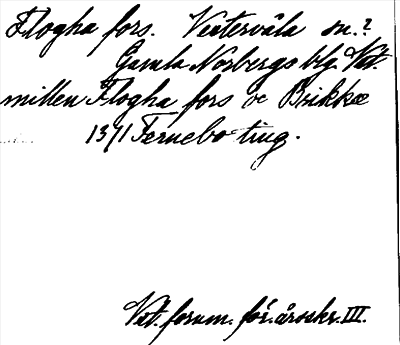 Flogha fors. Västervåla sn.?
Gamla Norbergs blg. Väst.
millen Flogha fors oc Brikkæ
1371 Fernebo ting.
Vst. fornm. för. årsskr. III.